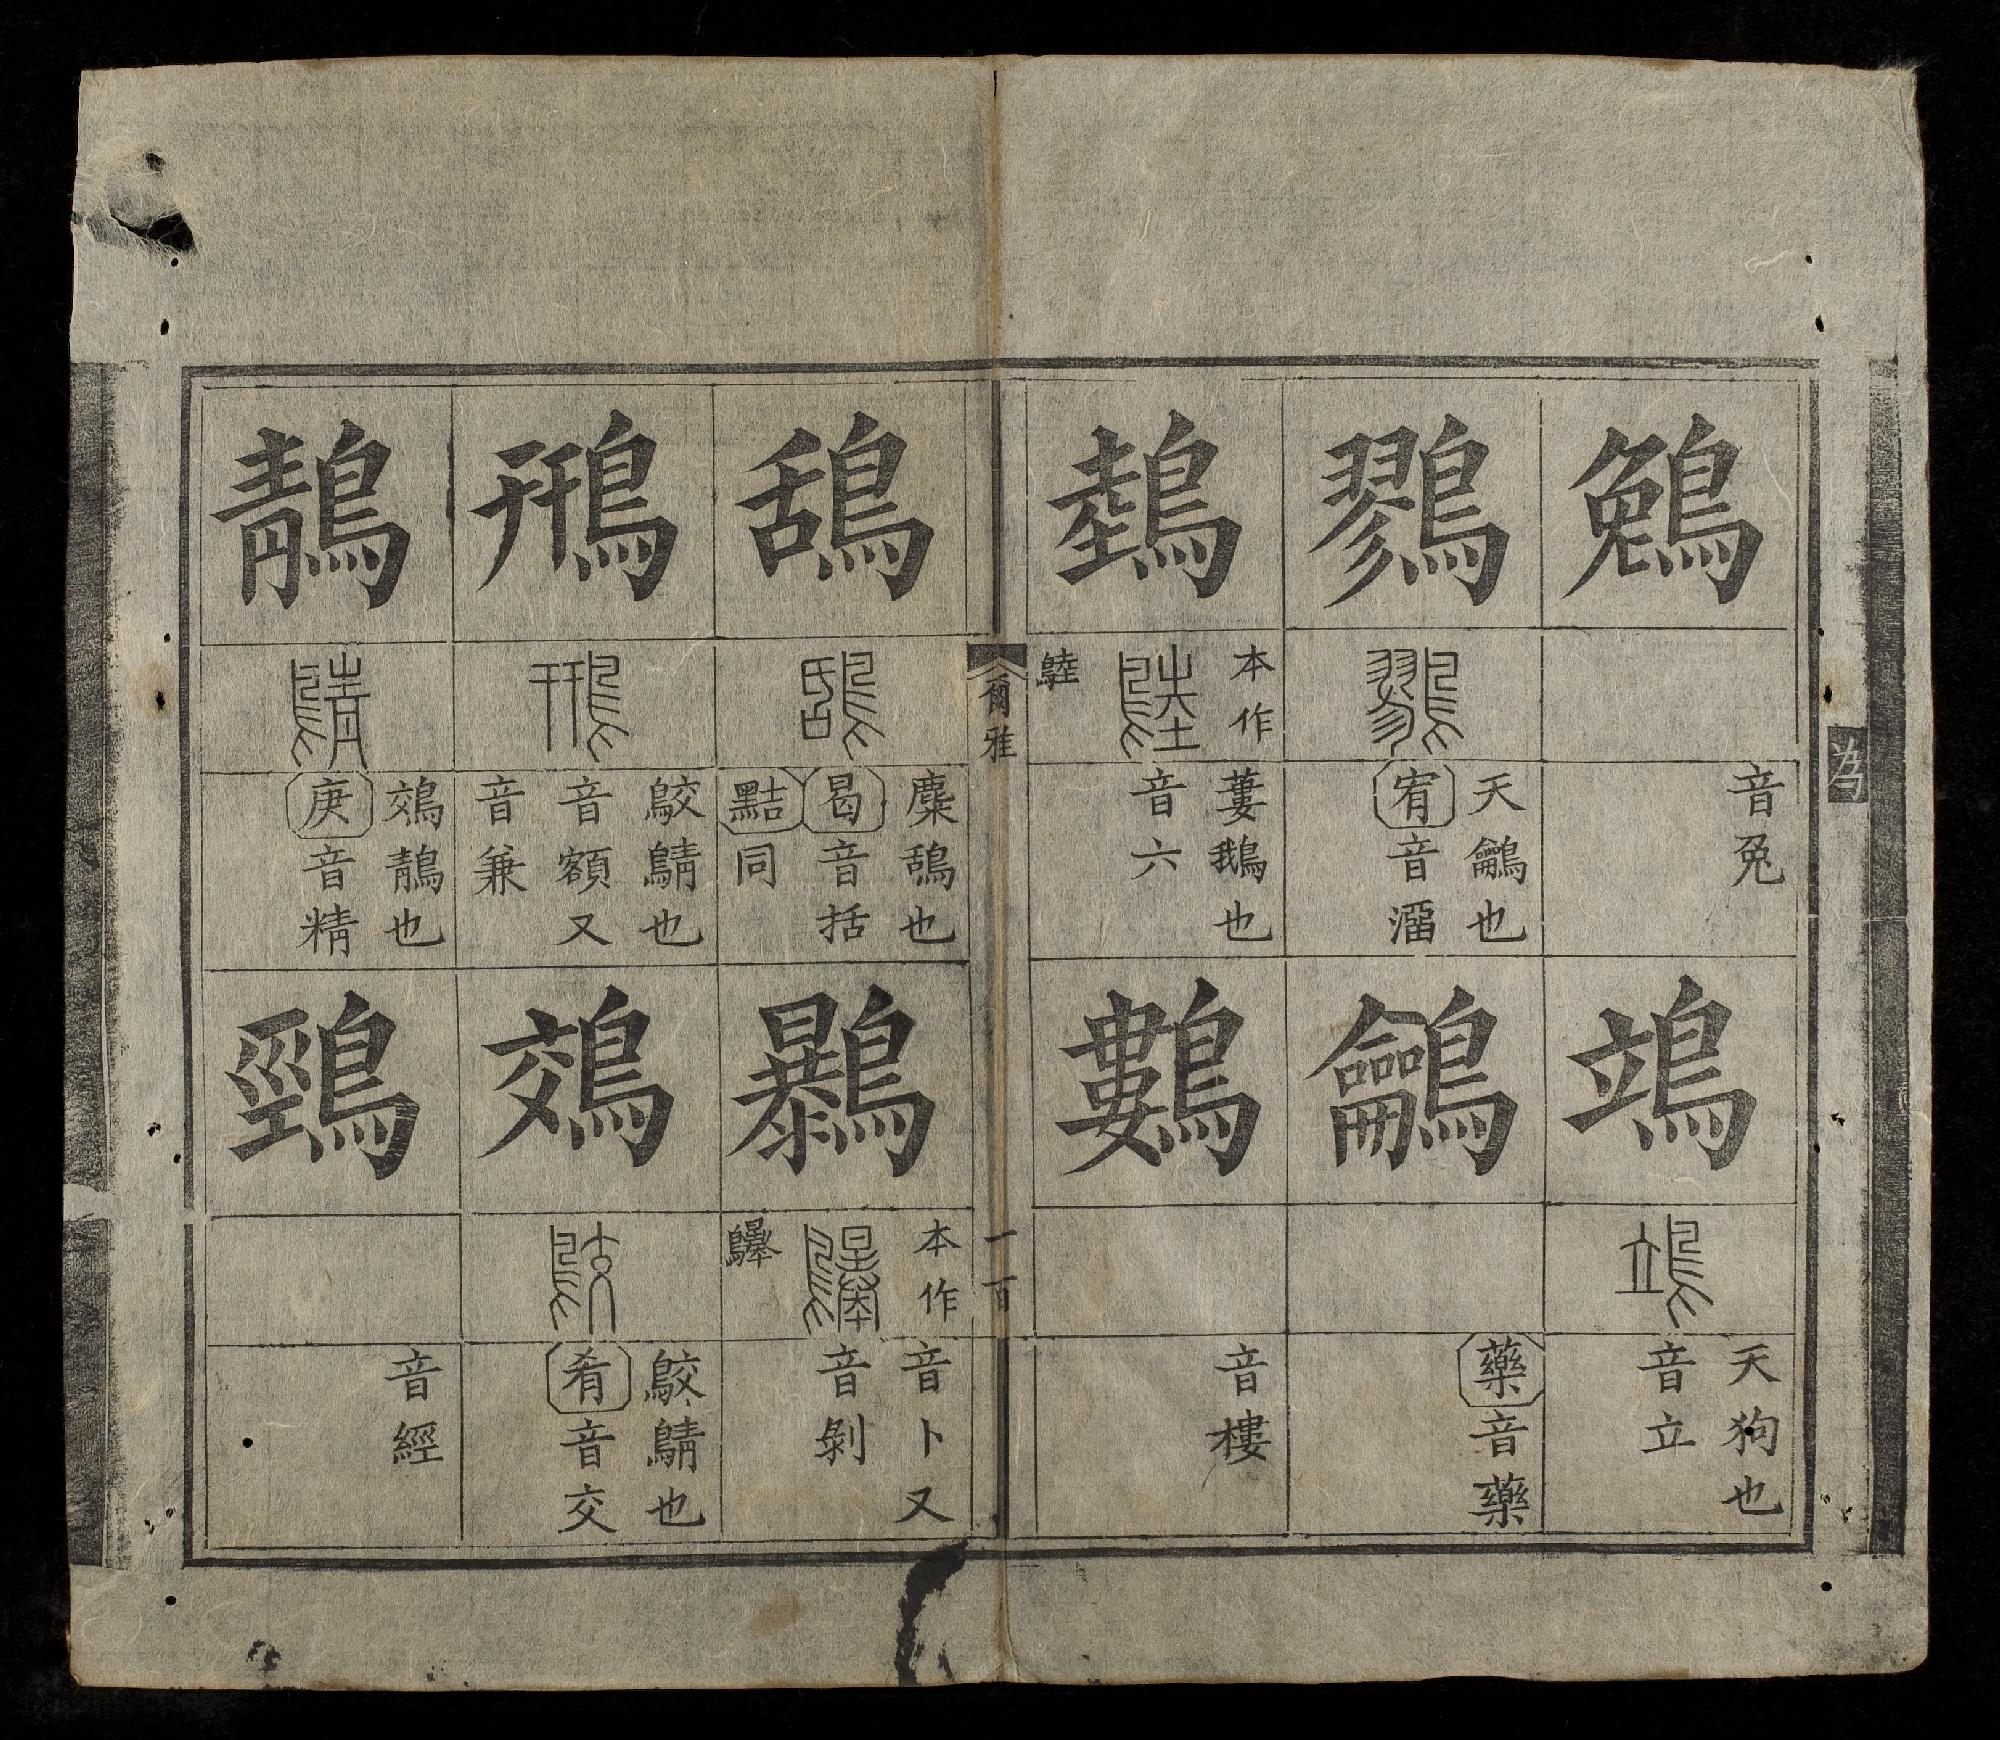 為
鵵
音兔
鴗
天狗也
音立
鷚
天鸙也
宥音澑
鸙
藥音藥
鵱
本作
鵱
蔞鵝也
音六
鷜
音樓
爾雅
一百
鴰
麋鴰也
曷音括
黠同
鸔
本作
音卜又
音剝
鳽
鵁鶄也
音額又
音兼
鵁
鵁鶄也
肴音交
鶄
鵁鶄也
庚音精
鵛
音經